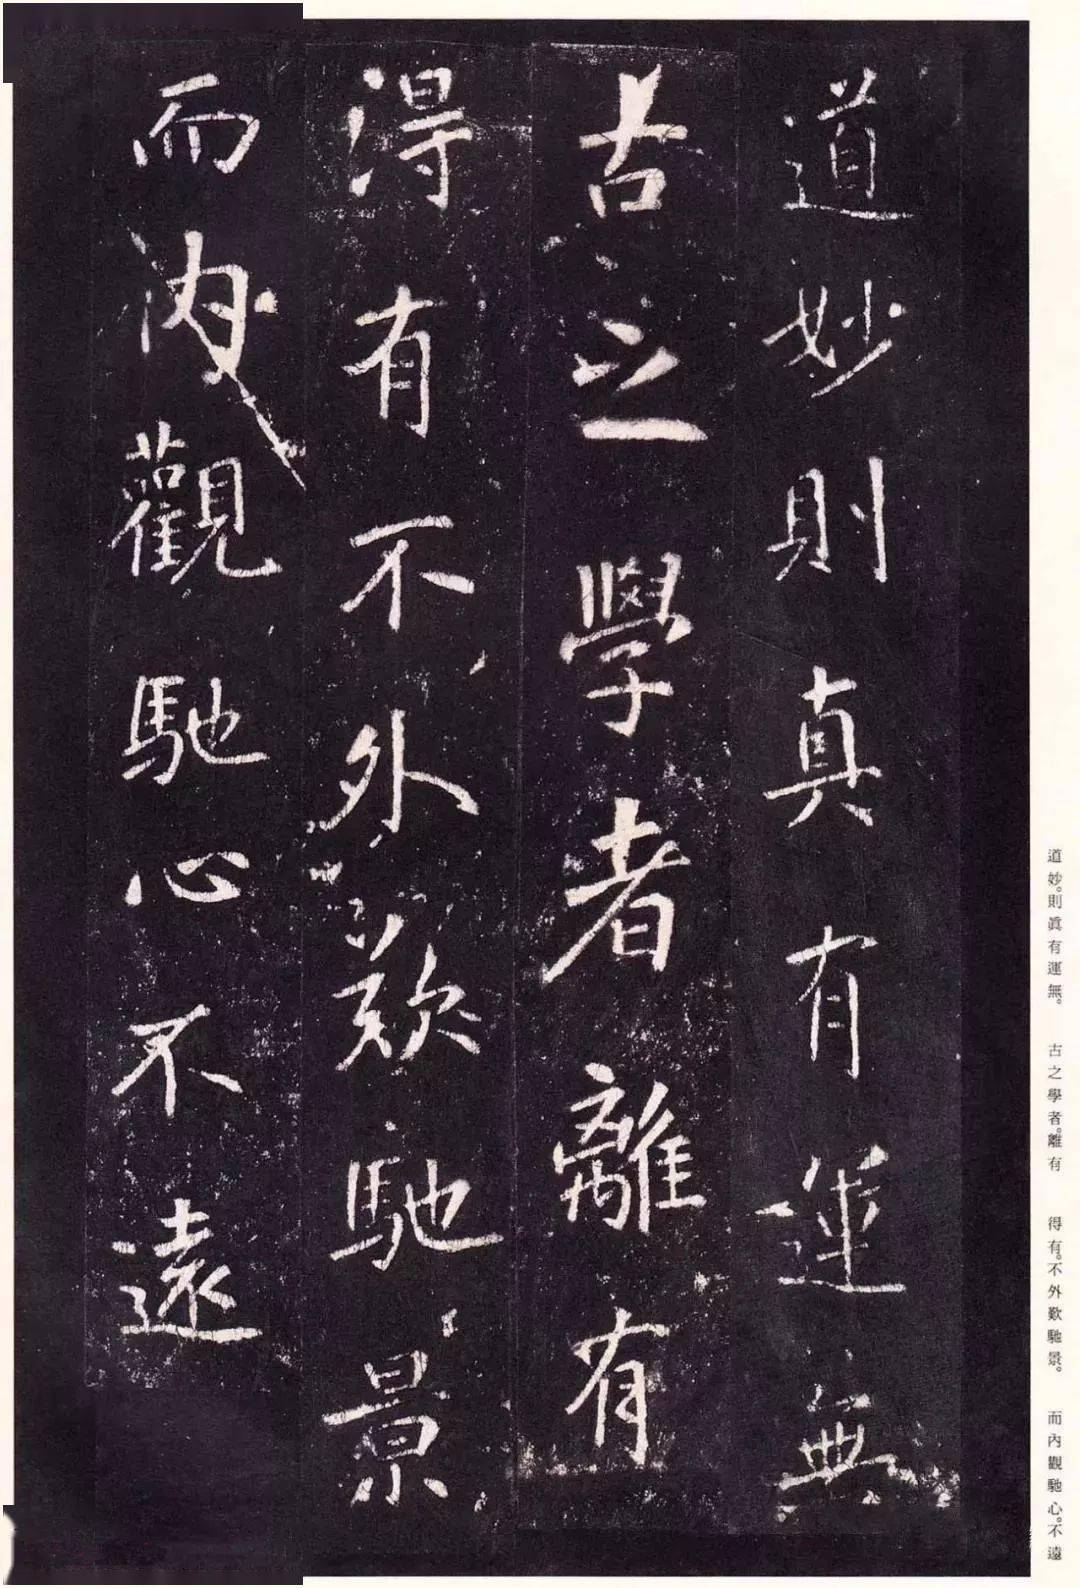 道妙則真有運無
古之學者離有
淂有不外歎馳景
而內觀馳心不遠
道妙。則眞有運無。 古之學者。離有 得有。不外歎馳景。 而內觀馳心。不遠